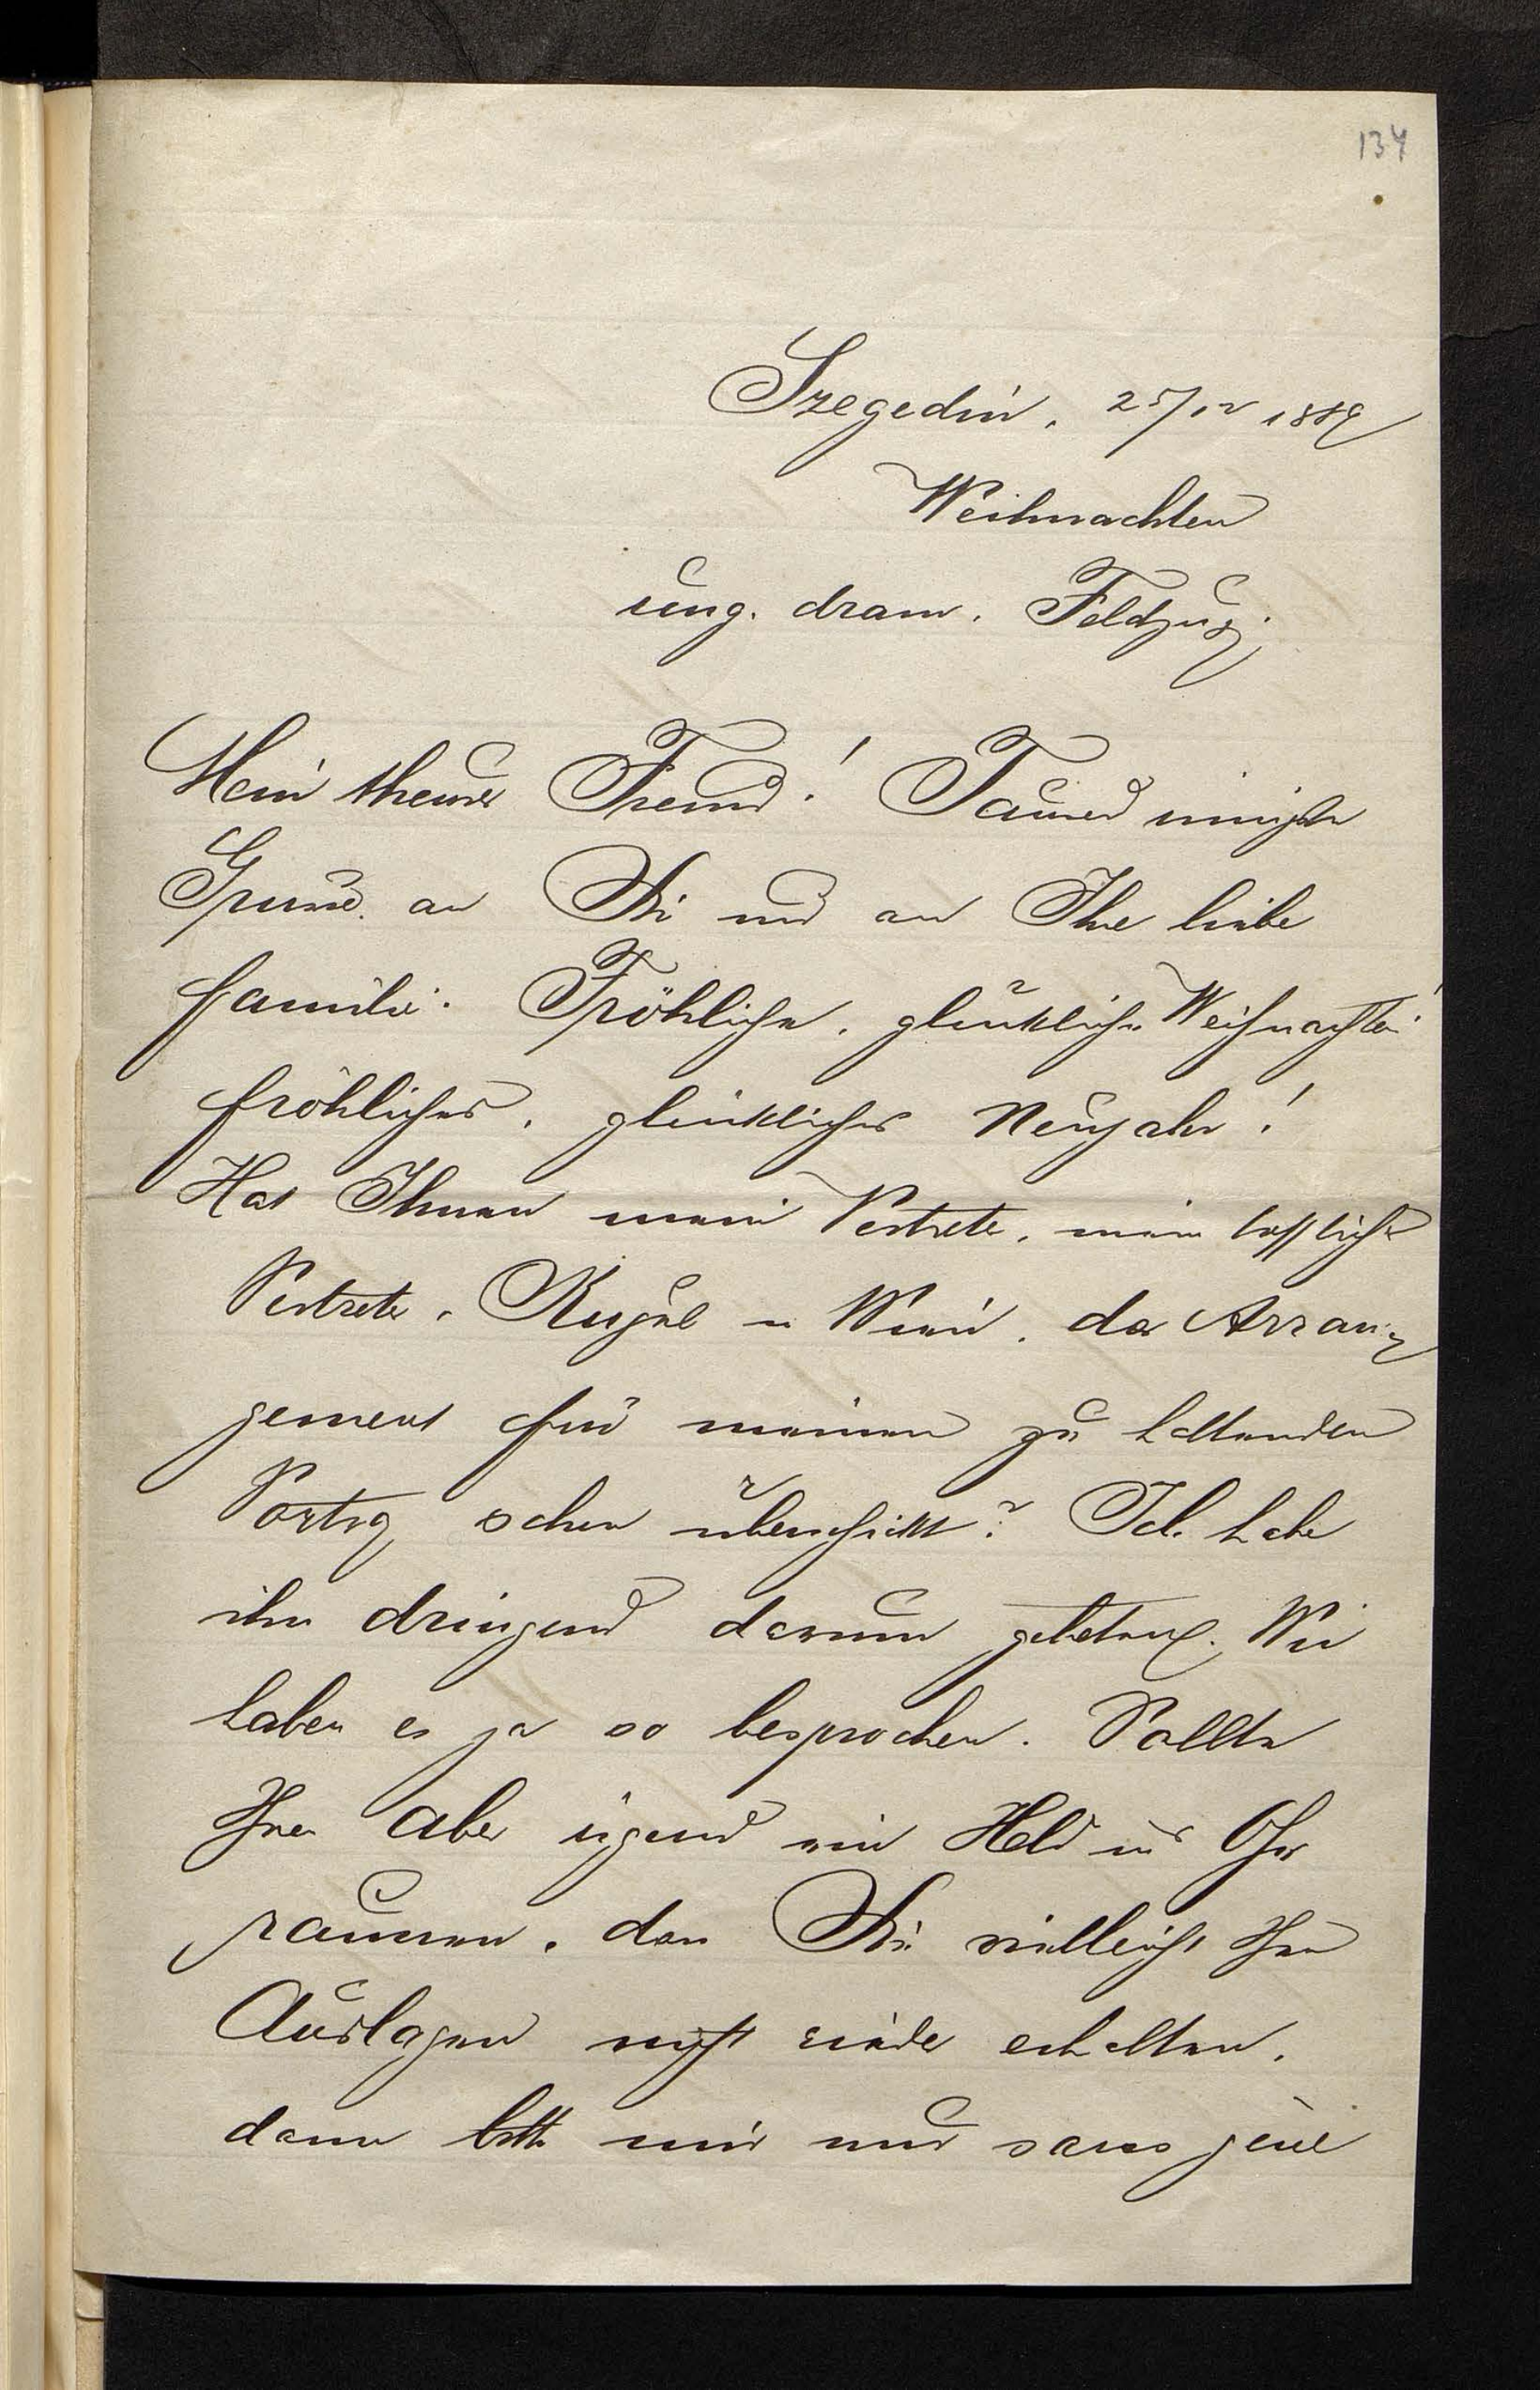 134
Szegedin, 25/12 1889
Weihnachten
ung. dram. Feldzug.
Mein theurer Freund! Tausend innigste
Grüsse an Sie und an Ihre liebe
Familie. Fröhliche, glückliche Weihnachten!
fröhliches, glückliches Neujahr!
Hat Ihnen mein Vertreter, mein trefflicher
Vertreter, Kugel in Wien, das Arran-
gement für meinen zu haltenden
Vortrag schon überschickt? Ich habe
ihn dringend darum gebeten. Wir
haben es ja so besprochen. Sollte
Ihnen aber irgend ein Held ins Ohr
raunen, dass Sie vielleicht Ihre
Auslagen nicht wieder erhalten,
dann bitte mir nur sans gêne